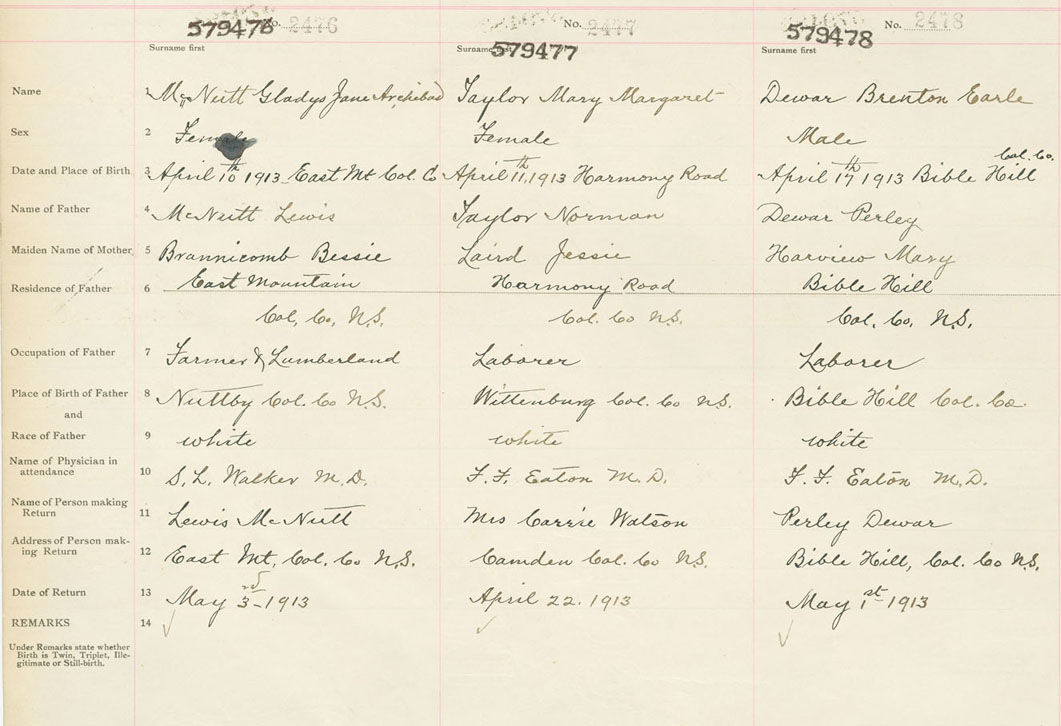 579476 No. 2476 579477 No. 2477 579478 No. 2478
Surname first Surname first Surname first
Name 1 McNutt Gladys Jane Archibald Taylor Mary Margaret Dewar Brenton Earle
Sex 2 Female Female Male
Date and Place of Birth 3 April 10th 1913 East Mt Col. Co April 11th, 1913 Harmony Road April 17th 1913 Bible Hill Col. Co.
Name of Father 4 McNutt Lewis Taylor Norman Dewar Perley
Maiden Name of Mother 5 Brannicomb Bessie Laird Jessie Harview Mary
Residence of Father 6 East Mountain Harmony Road Bible Hill
Col. Co, N.S. Col. Co N.S. Col. Co. N.S.
Occupation of Father 7 Farmer & Lumberland Laborer Laborer
Place of Birth of Father 8 Nuttby Col. Co N.S. Wittenburg Col. Co N.S. Bible Hill Col. Co
and
Race of Father 9 white white white
Name of Physician in
attendance 10 S. L. Walker M.D. F. F. Eaton M.D. F. F. Eaton M.D.
Name of Person making
Return 11 Lewis McNutt Mrs Carrie Watson Perley Dewar
Address of Person mak-
ing Return 12 East Mt, Col. Co N.S. Camden Col. Co N.S. Bible Hill, Col. Co N.S.
Date of Return 13 May 3rd 1913 April 22. 1913 May 1st 1913
REMARKS 14
Under Remarks state whether
Birth is Twin, Triplet, Ille-
gitimate or Still-birth.